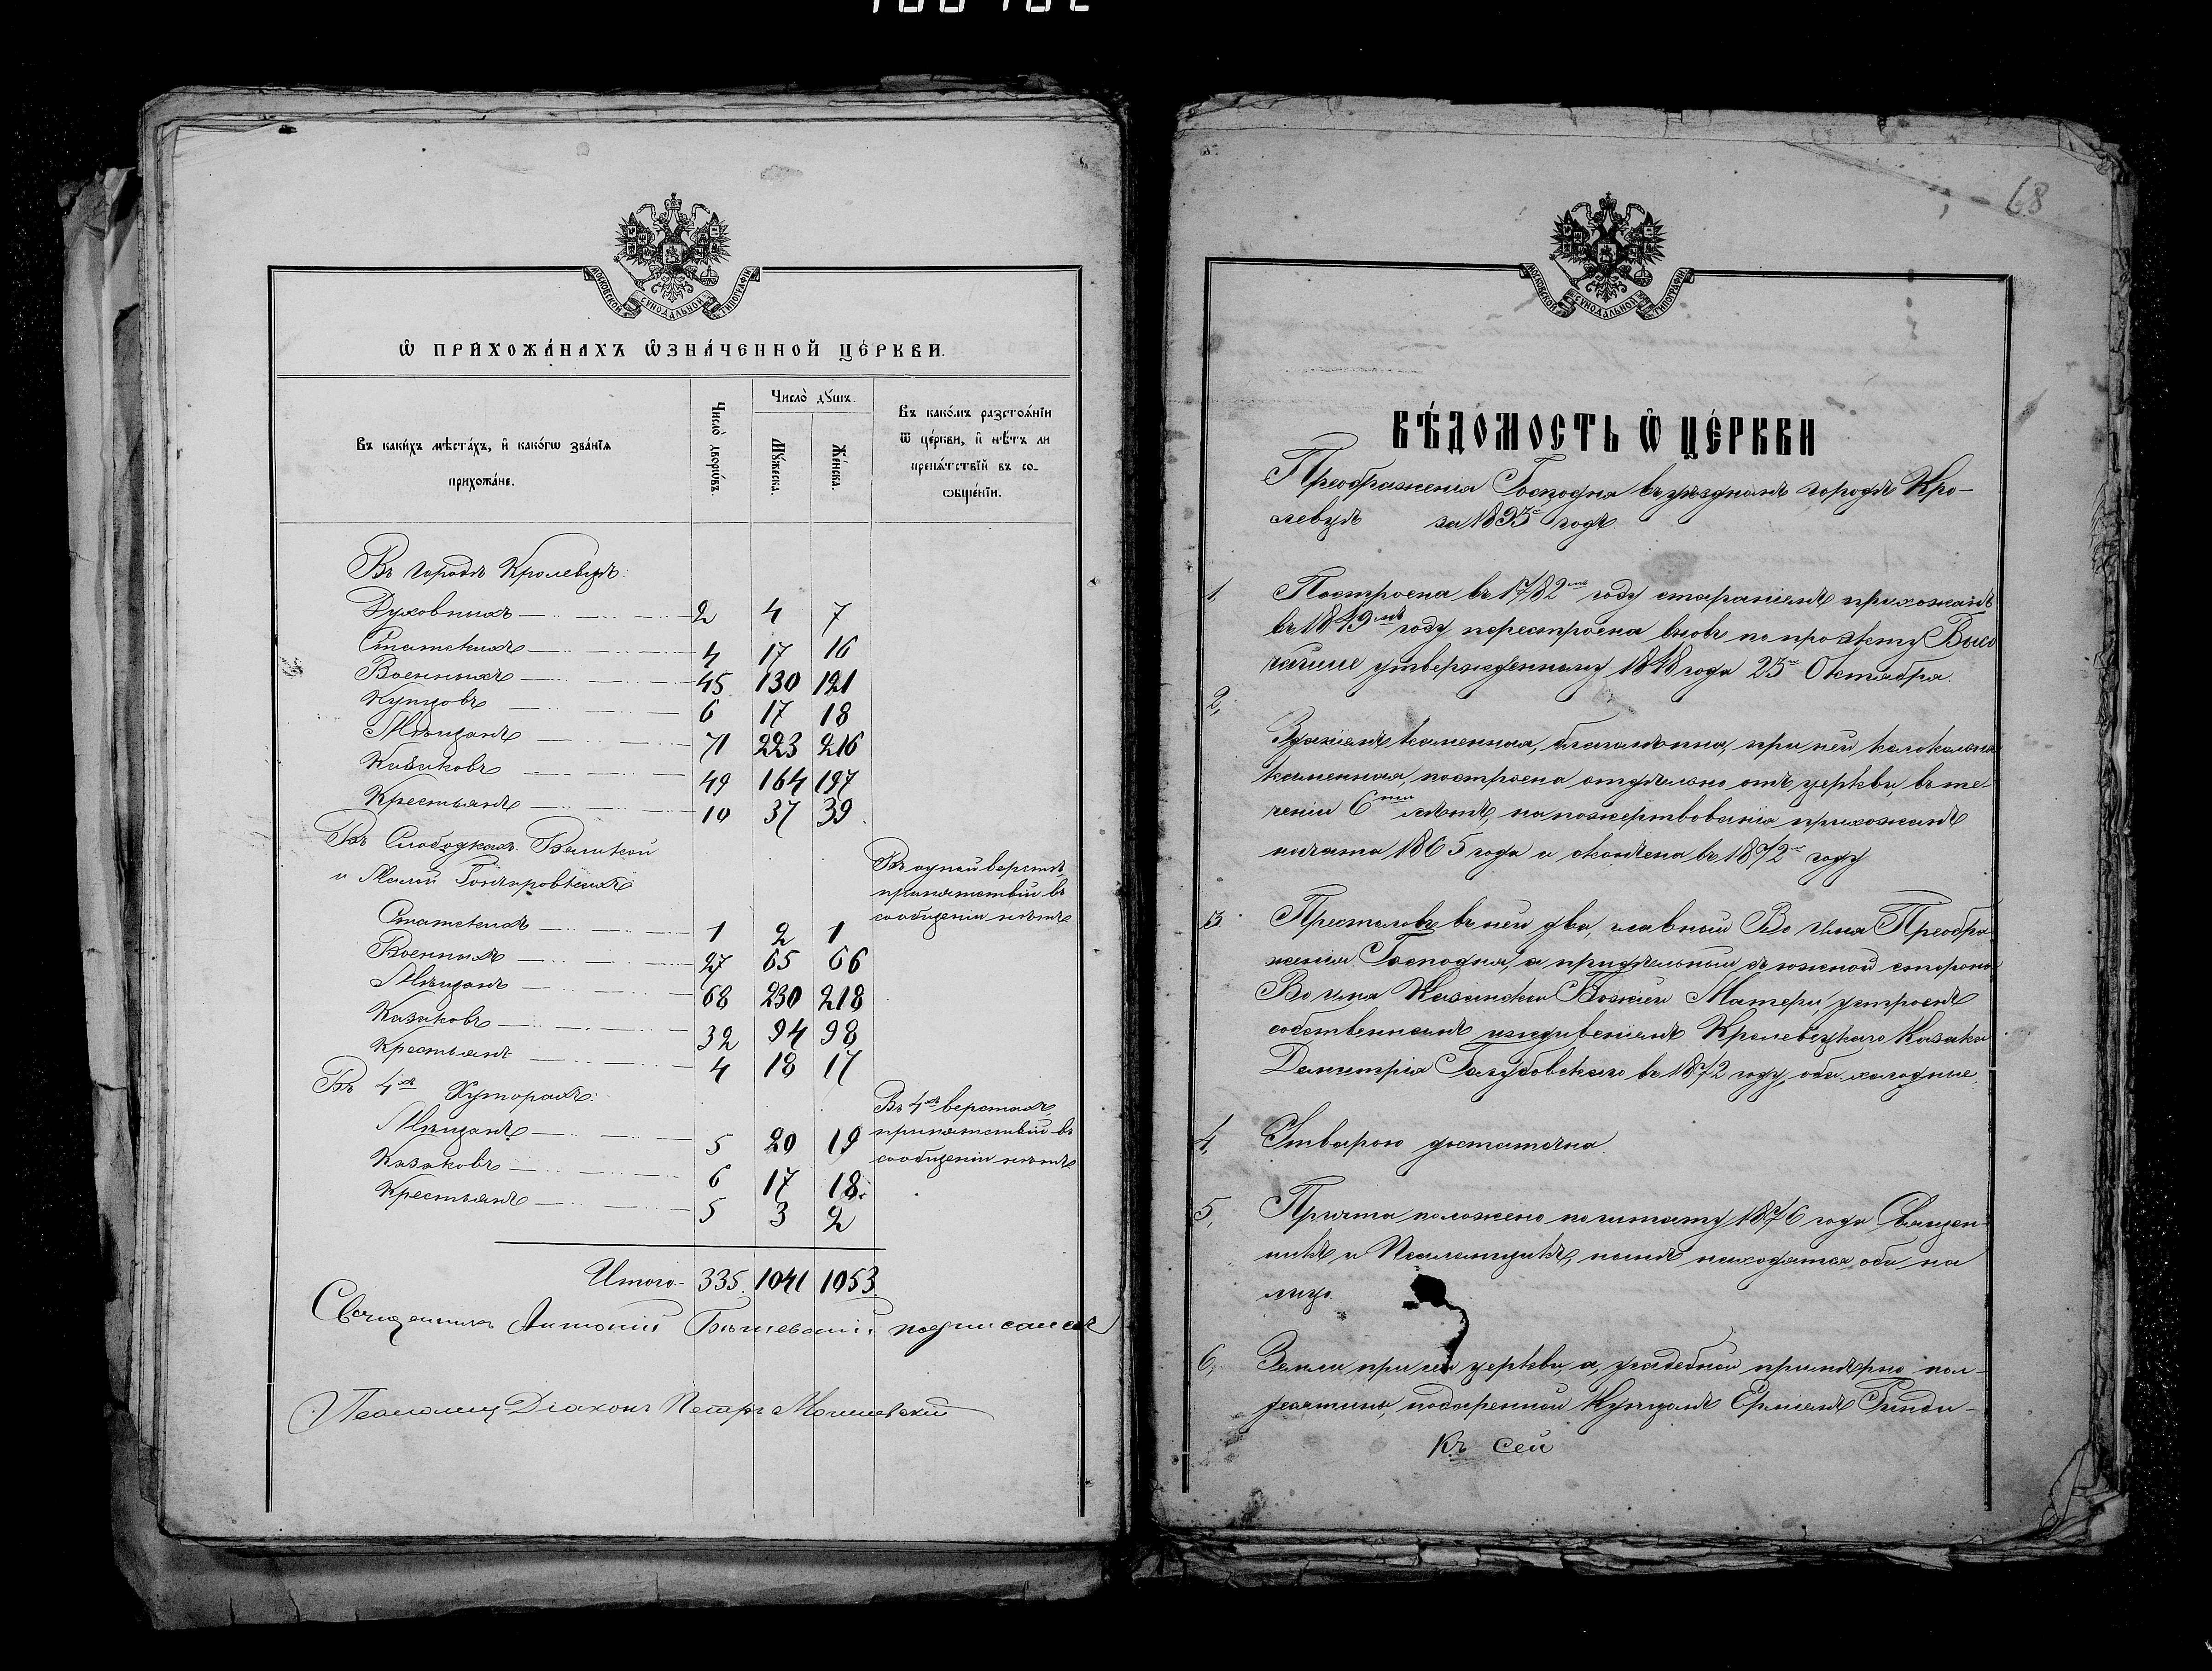 68
МОСКОВСКОЙ СѴНОДАЛЬНОЙ ТИПОГРАФІИ
Ѡ ПРИХОЖА́НАХЪ Ѡ҆ЗНА́ЧЕННОЙ ЦЕ́РКВИ.
Въ каки́хъ мѣста́хъ, и҆ како́гѡ зва́нїѧ прихожа́не.
Число̀ дворѡ́въ.
Число̀ дꙋ́шъ.
Мꙋ́жеска.
Же́нска.
Въ како́мъ разстоѧ́нїи
ѿ це́ркви, и҆ нѣ́тъ ли
препѧ́тствїй въ со-
ѻбще́нїи.
Въ городѣ Кролевцѣ:
Духовныхъ 2 4 7
Статскихъ 4 17 16
Военныхъ 45 130 121
Купцовъ 6 17 18
Мѣщанъ 71 223 216
Казаковъ 49 164 197
Крестьянъ 10 37 39
Въ Слободкахъ Великой
и Малой Гончаровкахъ
Въ одной верстѣ,
препятствій въ
сообщеніи нѣтъ
Статскихъ 1 2 1
Военныхъ 27 65 66
Мѣщанъ 68 230 218
Казаковъ 32 94 98
Крестьянъ 4 18 17
Въ 4хъ Хуторахъ:
Въ 4хъ верстахъ,
препятствій въ
сообщеніи нѣтъ
Мѣщанъ 5 20 19
Казаковъ 6 17 18
Крестьянъ 5 3 2
Итого 335 1041 1053
Священникъ Антоній подписался
Псаломщ Діаконъ Петръ
МОСКОВСКОЙ СѴНОДАЛЬНОЙ ТИПОГРАФІИ
ВѢ́ДОМОСТЬ Ѡ ЦЕ́РКВИ
Преображенія Господня въ уѣздномъ городѣ Кро-
левцѣ за 1895й годъ
1, Построена въ 1782мъ году стараніемъ прихожанъ
въ 1849мъ году перестроена вновь по проэкту Высо
чайше утвержденному 1848 года 25го Октября.
2,
Зданіемъ каменная, благолѣпна, при ней колокольня
каменная построена отдѣльно отъ церкви, въ те-
ченіи 6ти лѣтъ, на пожертвованія прихожанъ
начата 1865 года и окончена въ 1872м году
3 Престоловъ въ ней два, главный Во имя Преобра
женія Господня, а придѣльный съ южной стороны
Во имя Казанской Божіей Матери, устроенъ
собственнымъ иждивеніемъ Кролевецкаго Казака
Димитрія Голубовскаго въ 1872 году, оба холодные.
4, Утварью достаточна.
5, Причта положено по штату 1876 года Священ-
никъ и Псаломщикъ, нынѣ находятся оба на
лицо.
6, Земли при сей церкви, а, усадебной примѣрно пол-
десятины, подаренной Купцомъ
Къ сей